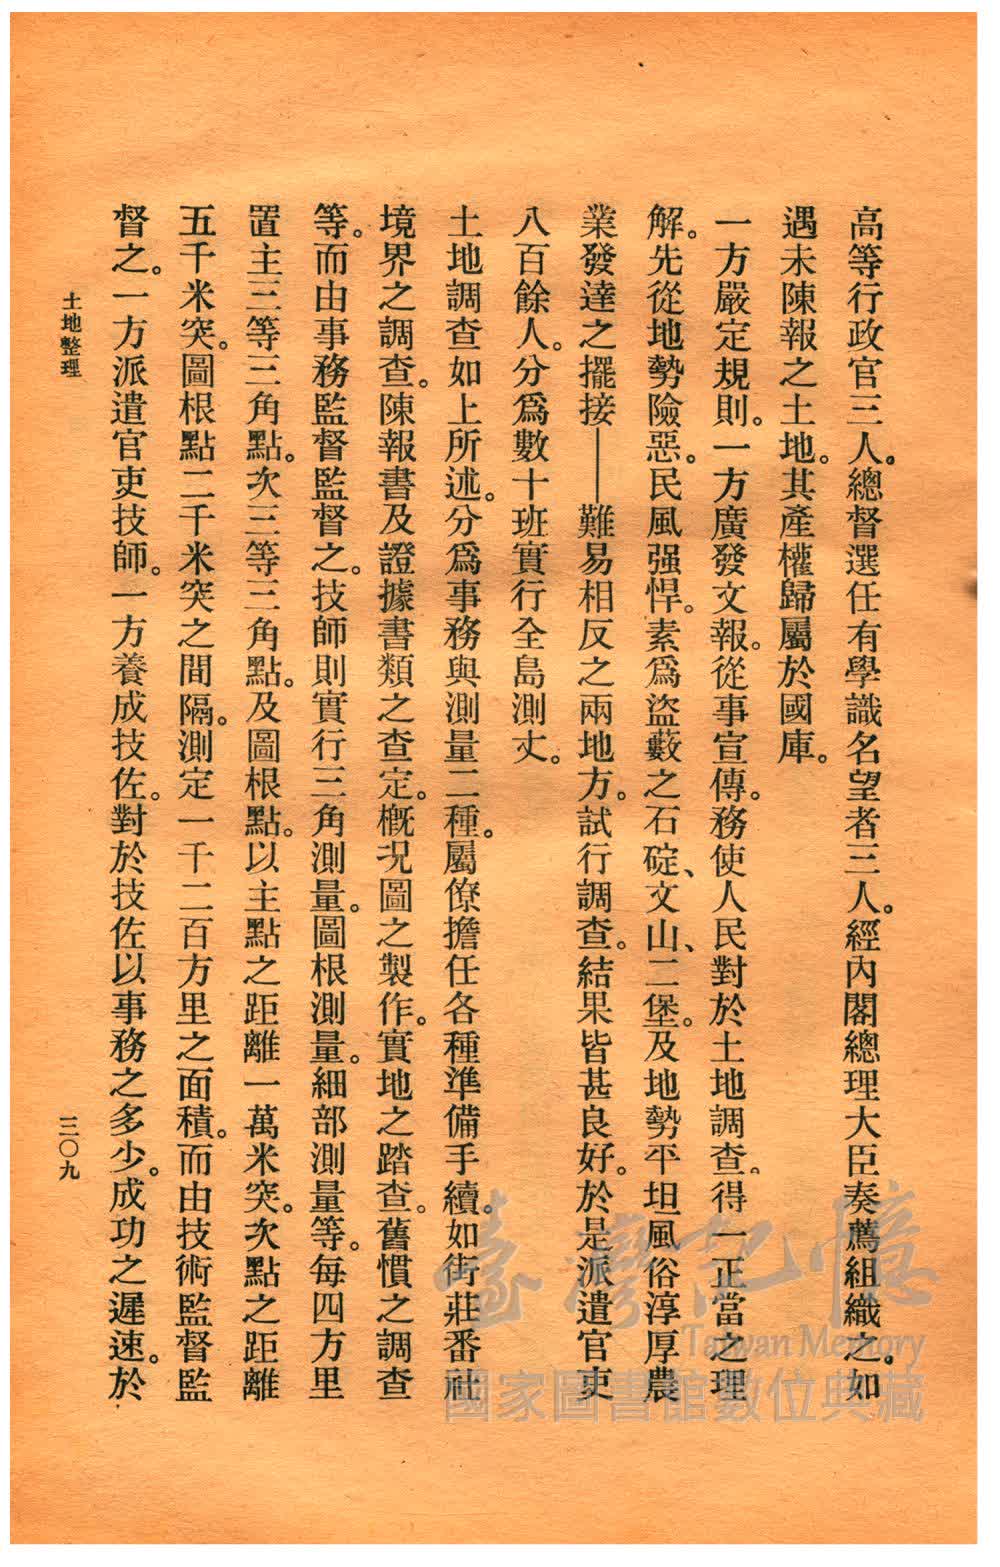 高等行政官三人。總督選任有學識名望者三人。經內閣總理大臣奏薦組織之。如
遇未陳報之土地。其產權歸屬於國庫。
一方嚴定規則。一方廣發文報。從事宣傳。務使人民對於土地調查。得一正當之理
解。先從地勢險惡。民風强悍。素爲盜藪之石碇、文山、二堡。及地勢平坦風俗淳厚農
業發達之擺接——難易相反之兩地方。試行調查。結果皆甚良好。於是派遣官吏
八百餘人。分爲數十班實行全島測丈。
土地調查如上所述。分爲事務與測量二種。屬僚擔任各種準備手續。如街莊番社
境界之調查。陳報書及證據書類之查定。概況圖之製作。實地之踏查。舊慣之調查
等。而由事務監督監督之。技師則實行三角測量。圖根測量。細部測量等。每四方里
置主三等三角點。次三等三角點。及圖根點。以主點之距離一萬米突。次點之距離
五千米突。圖根點二千米突之間隔。測定一千二百方里之面積。而由技術監督監
督之。一方派遣官吏技師。一方養成技佐。對於技佐以事務之多少。成功之遲速。於
土地整理
三〇九
臺灣記憶
Taiwan Memory
國家圖書館數位典藏